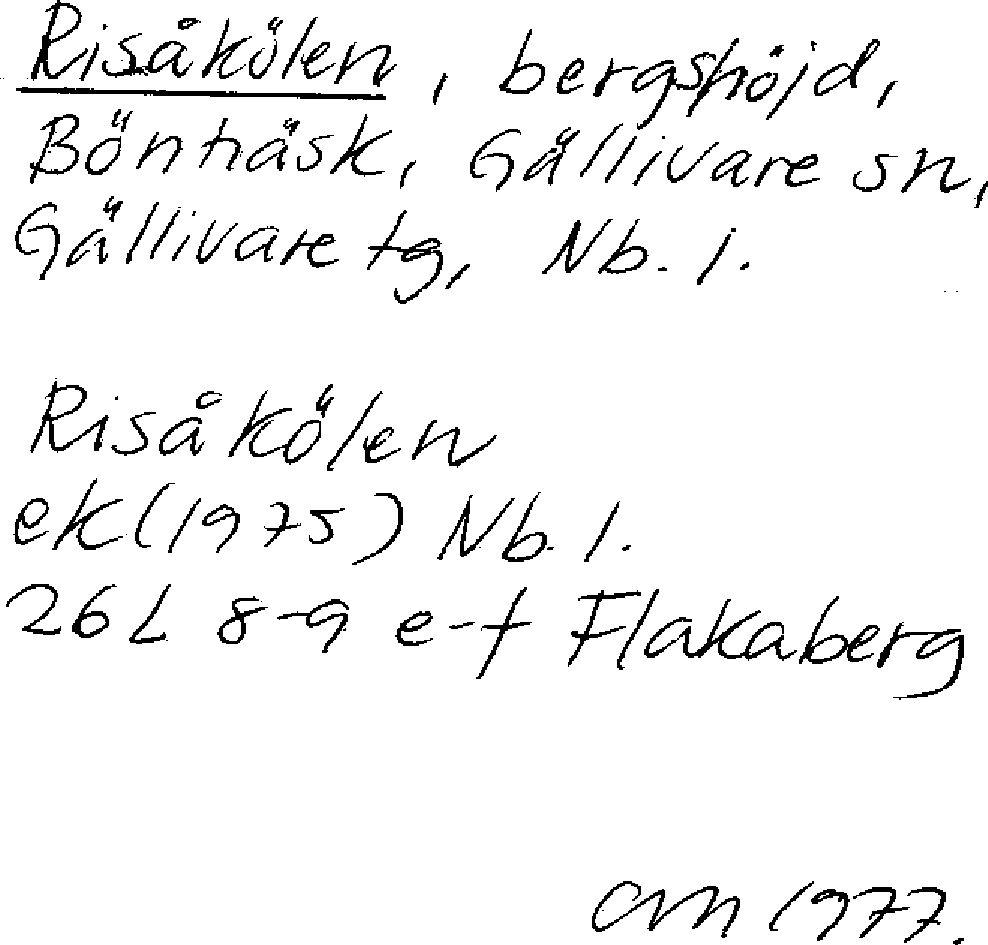 Risåkölen, bergshöjd,
Bönträsk, Gällivare sn,
Gällivare tg, Nb. l.
Risåkölen
ek (1975) Nb. l.
26L 8-9 e-f Flakaberg
1977.